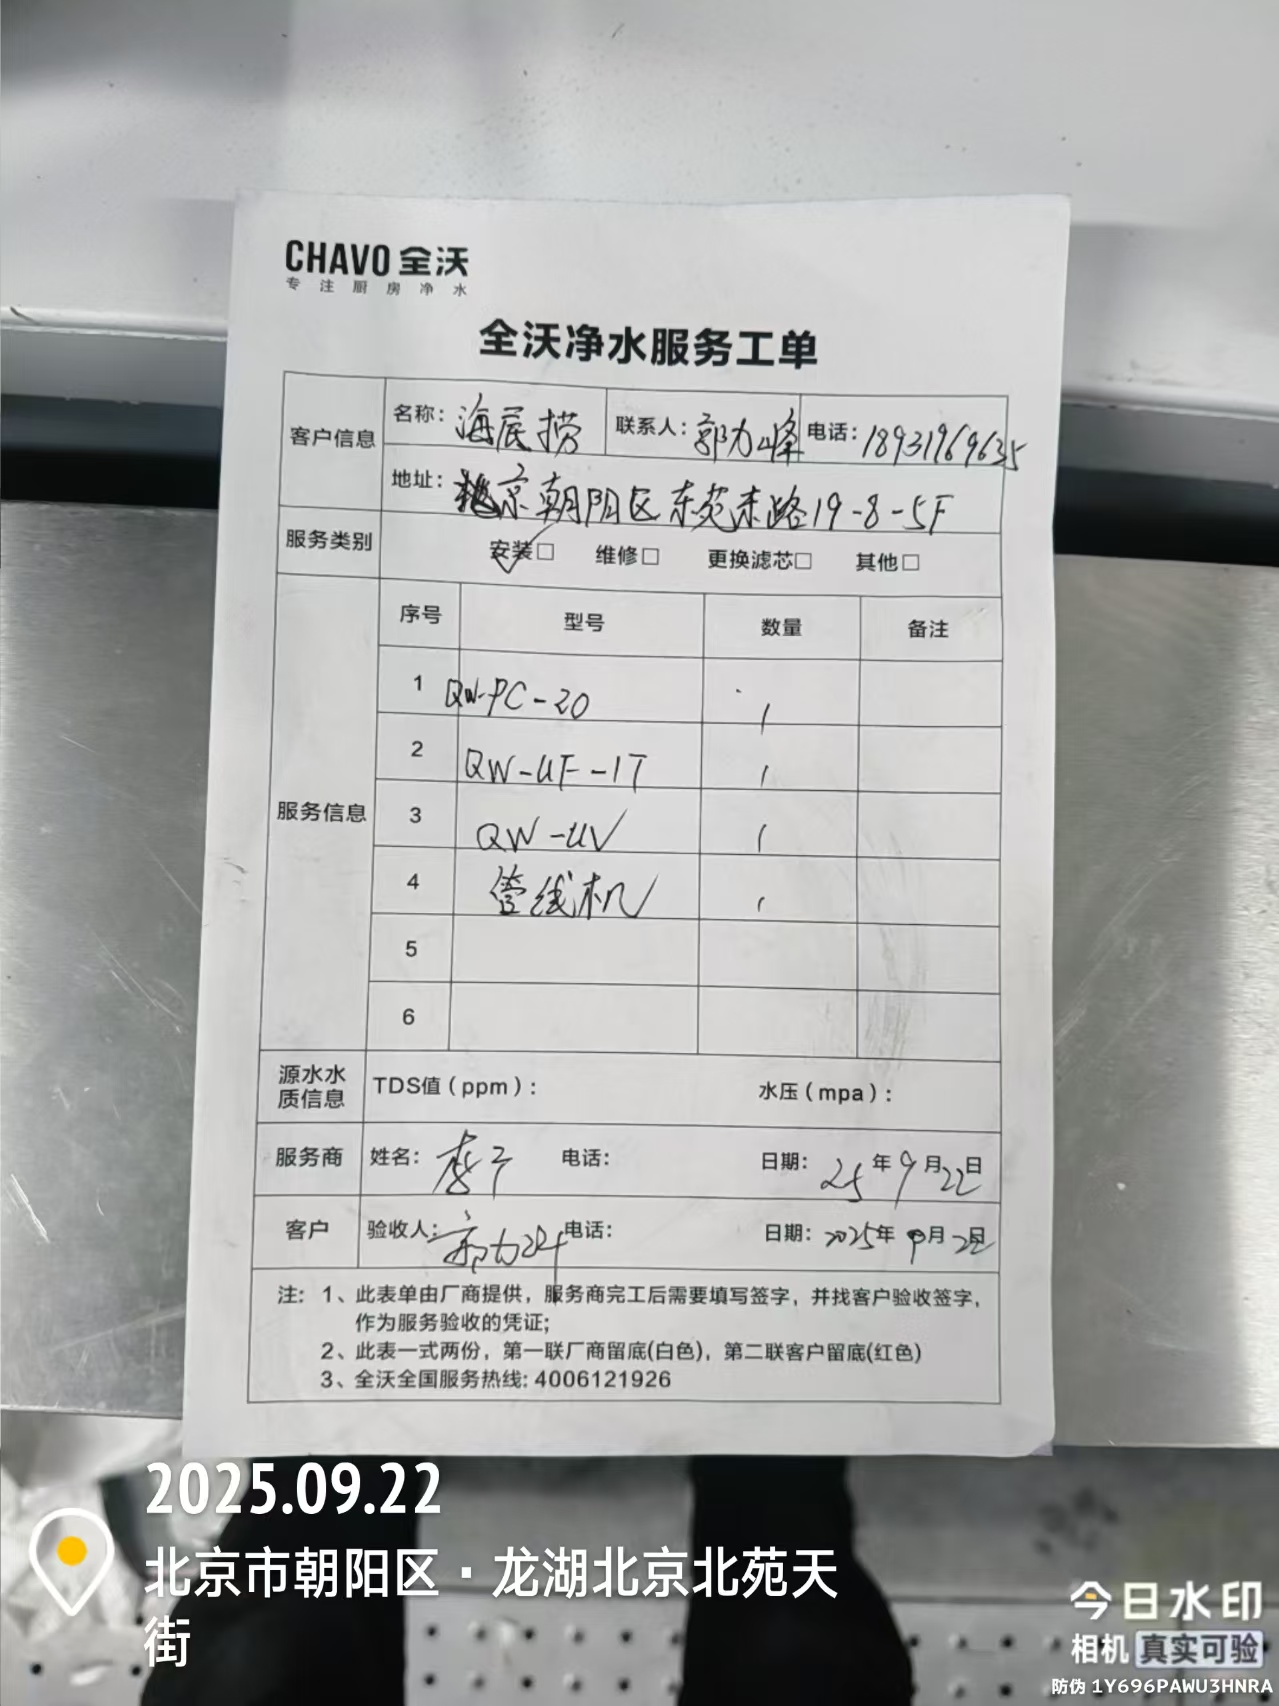 CHAVO 全沃
专注厨房净水
全沃净水服务工单
客户信息 名称：海底捞 联系人：郭力峰 电话：18931969635
地址：北京朝阳区东苑东路19-8-5F
服务类别 安装□ 维修□ 更换滤芯□ 其他□
服务信息 序号 型号 数量 备注
1 QW-PC-20 1
2 QW-UF-1T 1
3 QW-UV 1
4 管线机 1
5
6
源水水质信息 TDS值（ppm）： 水压（mpa）：
服务商 姓名： 电话： 日期：25年9月22日
客户 验收人：郭力峰 电话： 日期：2025年9月22日
注：1、此表单由厂商提供，服务商完工后需要填写签字，并找客户验收签字，
作为服务验收的凭证；
2、此表一式两份，第一联厂商留底(白色)，第二联客户留底(红色)
3、全沃全国服务热线: 4006121926
2025.09.22
北京市朝阳区·龙湖北京北苑天
街
今日水印
相机 真实可验
防伪 1Y696PAWU3HNRA